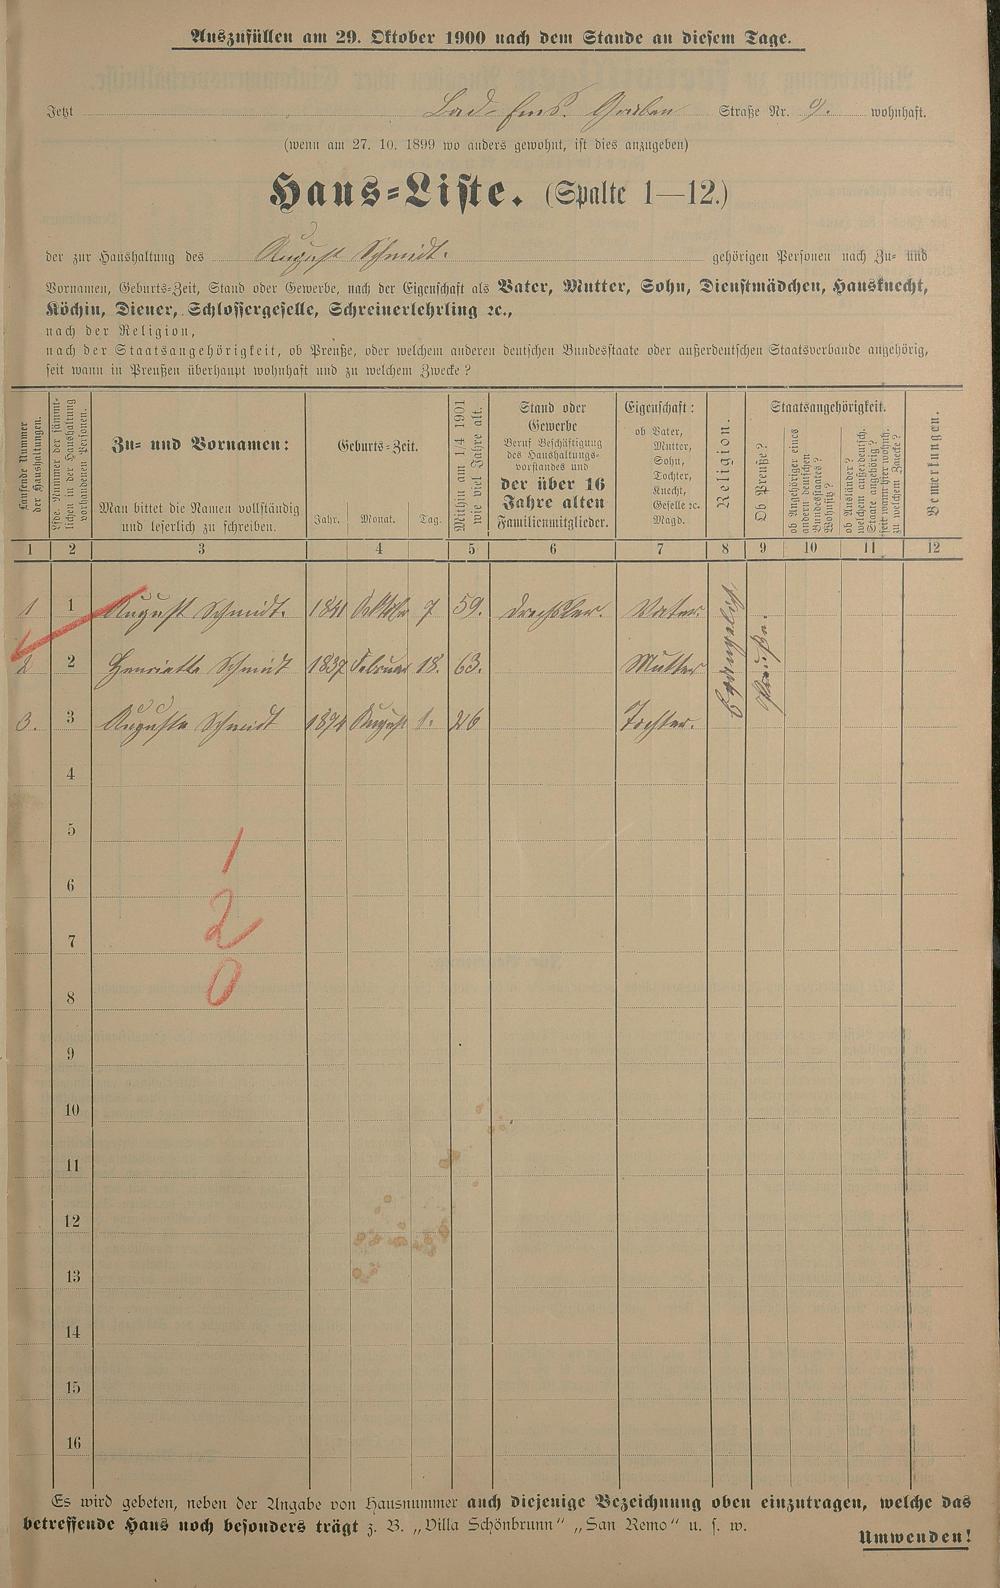 Auszufüllen am 29. Oktober 1900 nach dem Stande an diesem Tage.
Jetzt Bad-Ems. Graben Straße Nr. 9. wohnhaft.
(wenn am 27. 10. 1899 wo anders gewohnt, ist dies anzugeben)
Haus-Liste. (Spalte 1—12.)
der zur Haushaltung des August Schmidt. gehörigen Personen nach Zu- und
Vornamen, Geburts-Zeit, Stand oder Gewerbe, nach der Eigenschaft als Vater, Mutter, Sohn, Dienstmädchen, Hausknecht,
Köchin, Diener, Schlossergeselle, Schreinerlehrling ꝛc.,
nach der Religion,
nach der Staatsangehörigkeit, ob Preuße, oder welchem anderen deutschen Bundesstaate oder außerdeutschen Staatsverbande angehörig,
seit wann in Preußen überhaupt wohnhaft und zu welchem Zwecke?
Laufende Nummer der Haushaltungen.
Lfde. Nummer der sämmtlichen in der Haushaltung vorhandenen Personen.
Zu- und Vornamen:
Man bittet die Namen vollständig
und leserlich zu schreiben.
Geburts-Zeit.
Jahr. Monat. Tag.
Mithin am 1/4 1901 wie viel Jahre alt.
Stand oder
Gewerbe
Beruf Beschäftigung
des Haushaltungs-
vorstandes und
der über 16
Jahre alten
Familienmitglieder.
Eigenschaft:
ob Vater,
Mutter,
Sohn,
Tochter,
Knecht,
Geselle ꝛc.
Magd.
Religion.
Staatsangehörigkeit.
Ob Preuße?
ob Angehöriger eines andern deutschen Bundesstaates? Wohnsitz?
ob Ausländer? welchem außerdeutsch. Staate angehörig? seit wann hier wohnh. zu welchem Zwecke?
Bemerkungen.
1 2 3 4 5 6 7 8 9 10 11 12
1 1 August Schmidt. 1841 Oktober 7 59. Drechsler. Vater
2 2 Henriette Schmidt 1837 Februar 18. 63. Mutter
3. 3 Auguste Schmidt 1874 August 1. 26 Tochter.
Evangelisch
Preuße.
4
5
1
6
2
7
0
8
9
10
11
12
13
14
15
16
Es wird gebeten, neben der Angabe von Hausnummer auch diejenige Bezeichnung oben einzutragen, welche das
betreffende Haus noch besonders trägt z. B. „Villa Schönbrunn“ „San Remo“ u. s. w.
Umwenden!